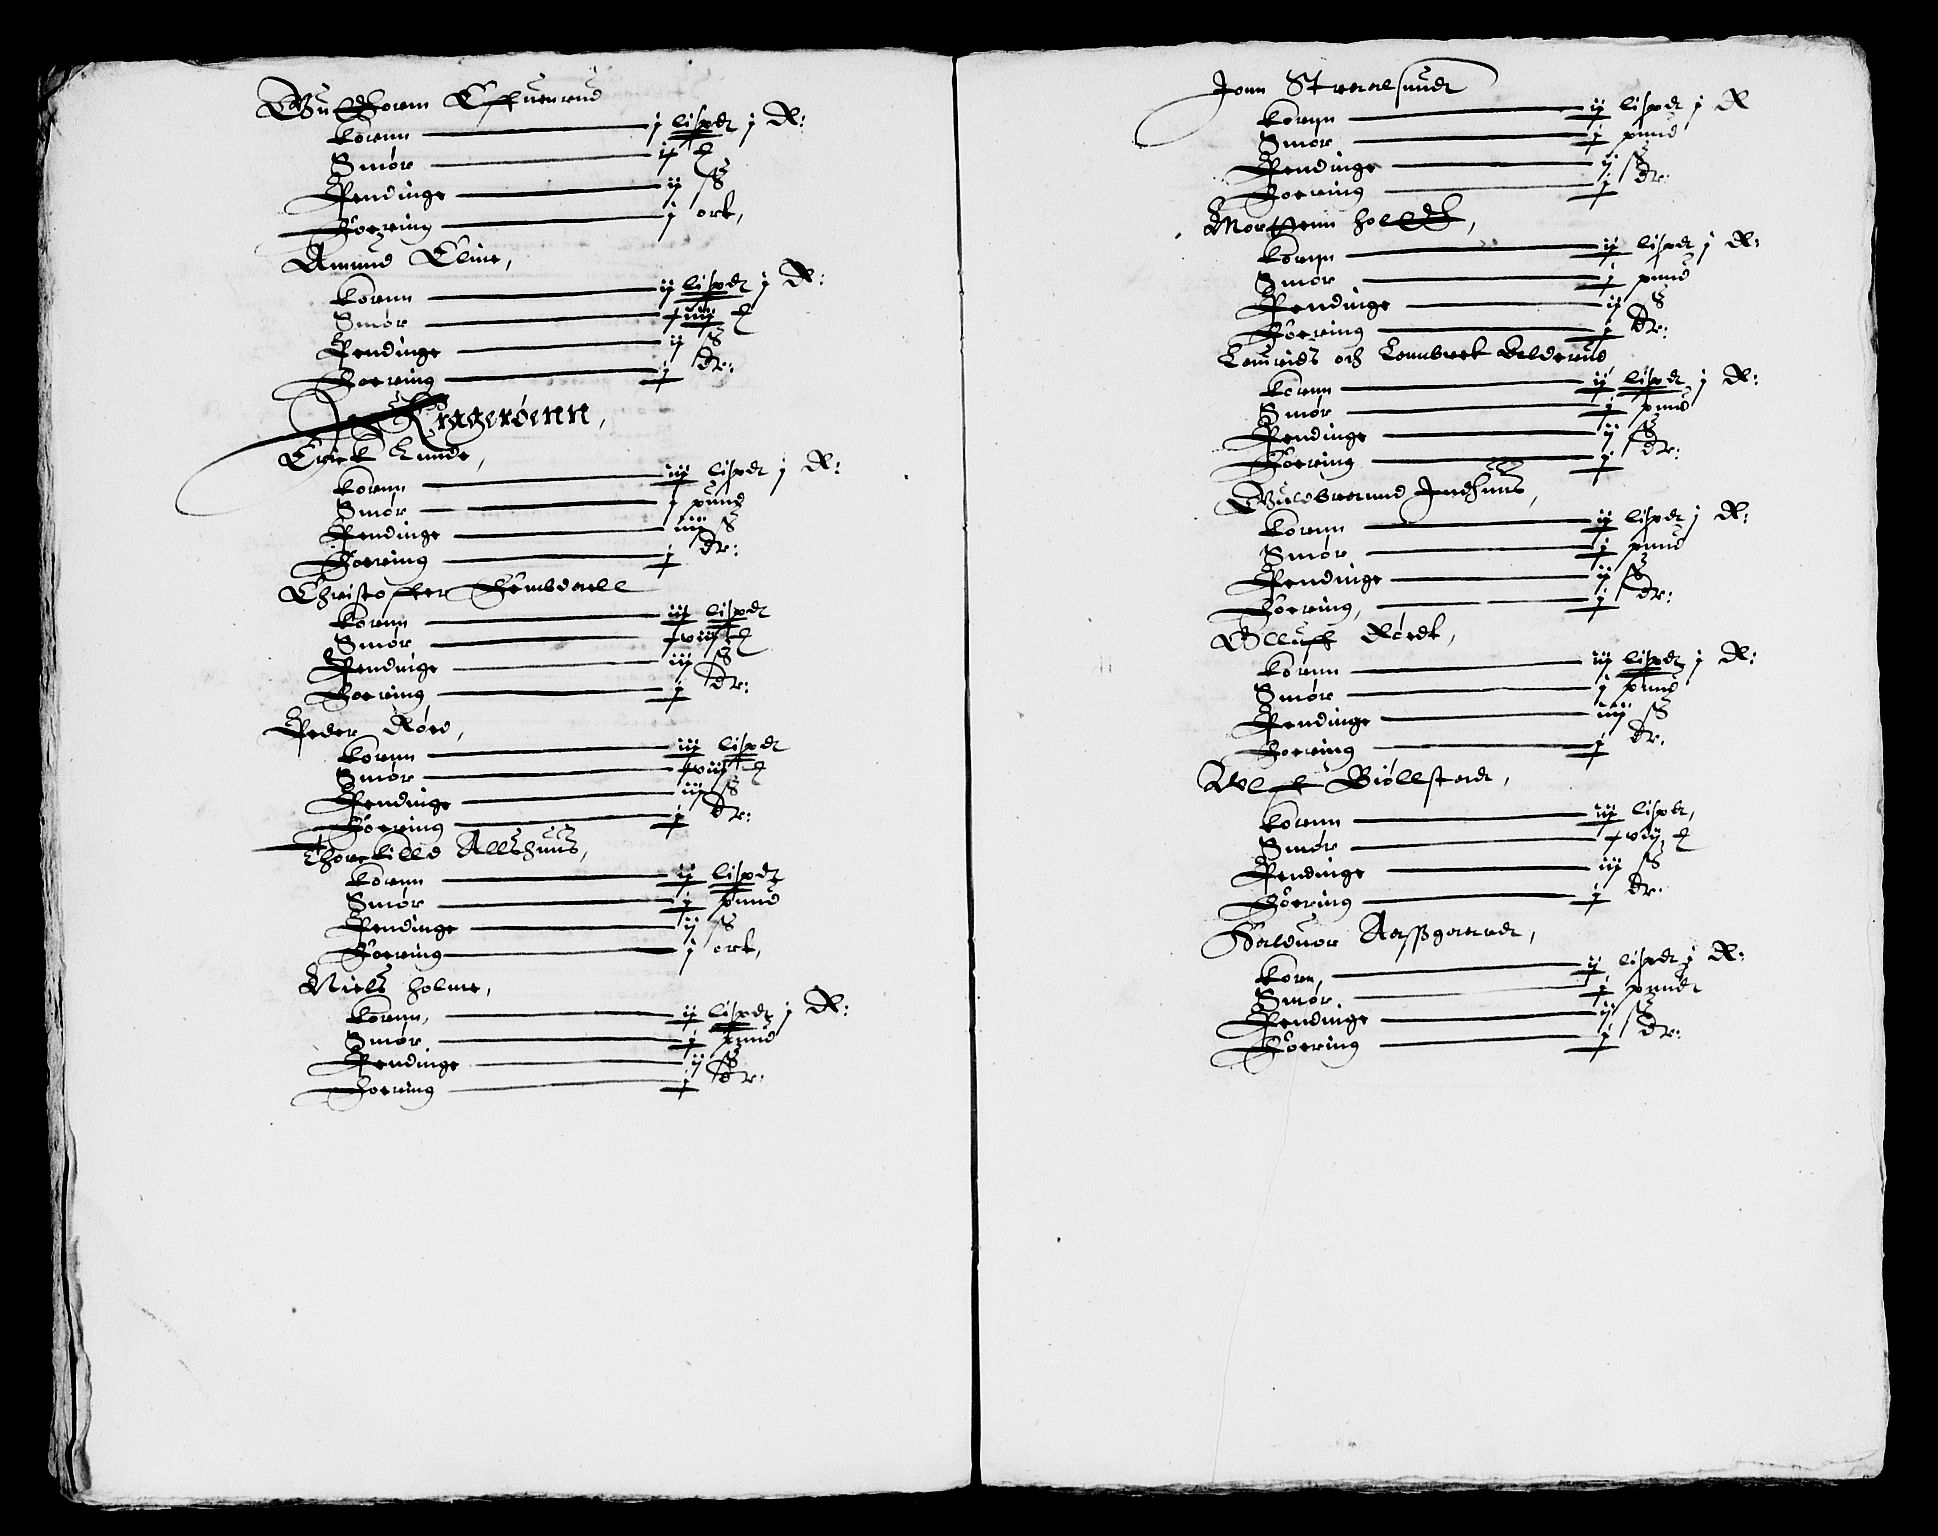 Guthorm Effuenrud
Kornn — j lispdt j R:
Smør — ij ℔
Pendinge — ij ß
Foering — j ort,
Amund Eline,
Kornn — ij lispdt j R:
Smør — ℔
Pendinge — ij ß
Foering — j dr:
Kragerøenn,
Erick Lunde,
Kornn — iij lispdt j R:
Smør — j pund
Pendinge — iiij ß
Foering — j dr:
Christoffer Hembdaell
Kornn — iij lispdt
Smør — viij ℔
Pendinge — iij ß
Foering — j dr:
Peder Røed,
Kornn — iij lispdt
Smør — viij ℔
Pendinge — iij ß
Foering — j dr:
Thorckilld Allshuus,
Kornn — ij lispdt
Smør — j pund
Pendinge — ij ß
Foering — j ort,
Niels Holme,
Kornn, — ij lispdt j R:
Smør — j pund
Pendinge — ij ß
Foering — j dr:
Jonn Straalsundt
Kornn — ij lispdt j R
Smør — j pund
Pendinge — ij ß
Foering — j dr:
Mortenn Holdth,
Kornn — ij lispdt j R:
Smør — j pund
Pendinge — ij ß
Foering — j dr:
Lauridts och Lambrett Belderud
Kornn — ij lispdt j R:
Smør — j pund
Pendinge — ij ß
Foering — j dr:
Gulbrannd Indhuus,
Kornn — ij lispdt j R:
Smør — j pund
Pendinge — ij ß
Foering, — j dr:
Olluff Rødt,
Kornn — iij lispdt j R:
Smør — j pund
Pendinge — iiij ß
Foering — j dr:
Rolff Biøllstadt,
Kornn — iij lispdt,
Smør — viij ℔
Pendinge — iij ß
Foering — j dr:
Halduor Aaßgaardt,
Korn, — ij lispdt j R:
Smør — j pundt
Pendinge — ij ß
Foering — j dr: